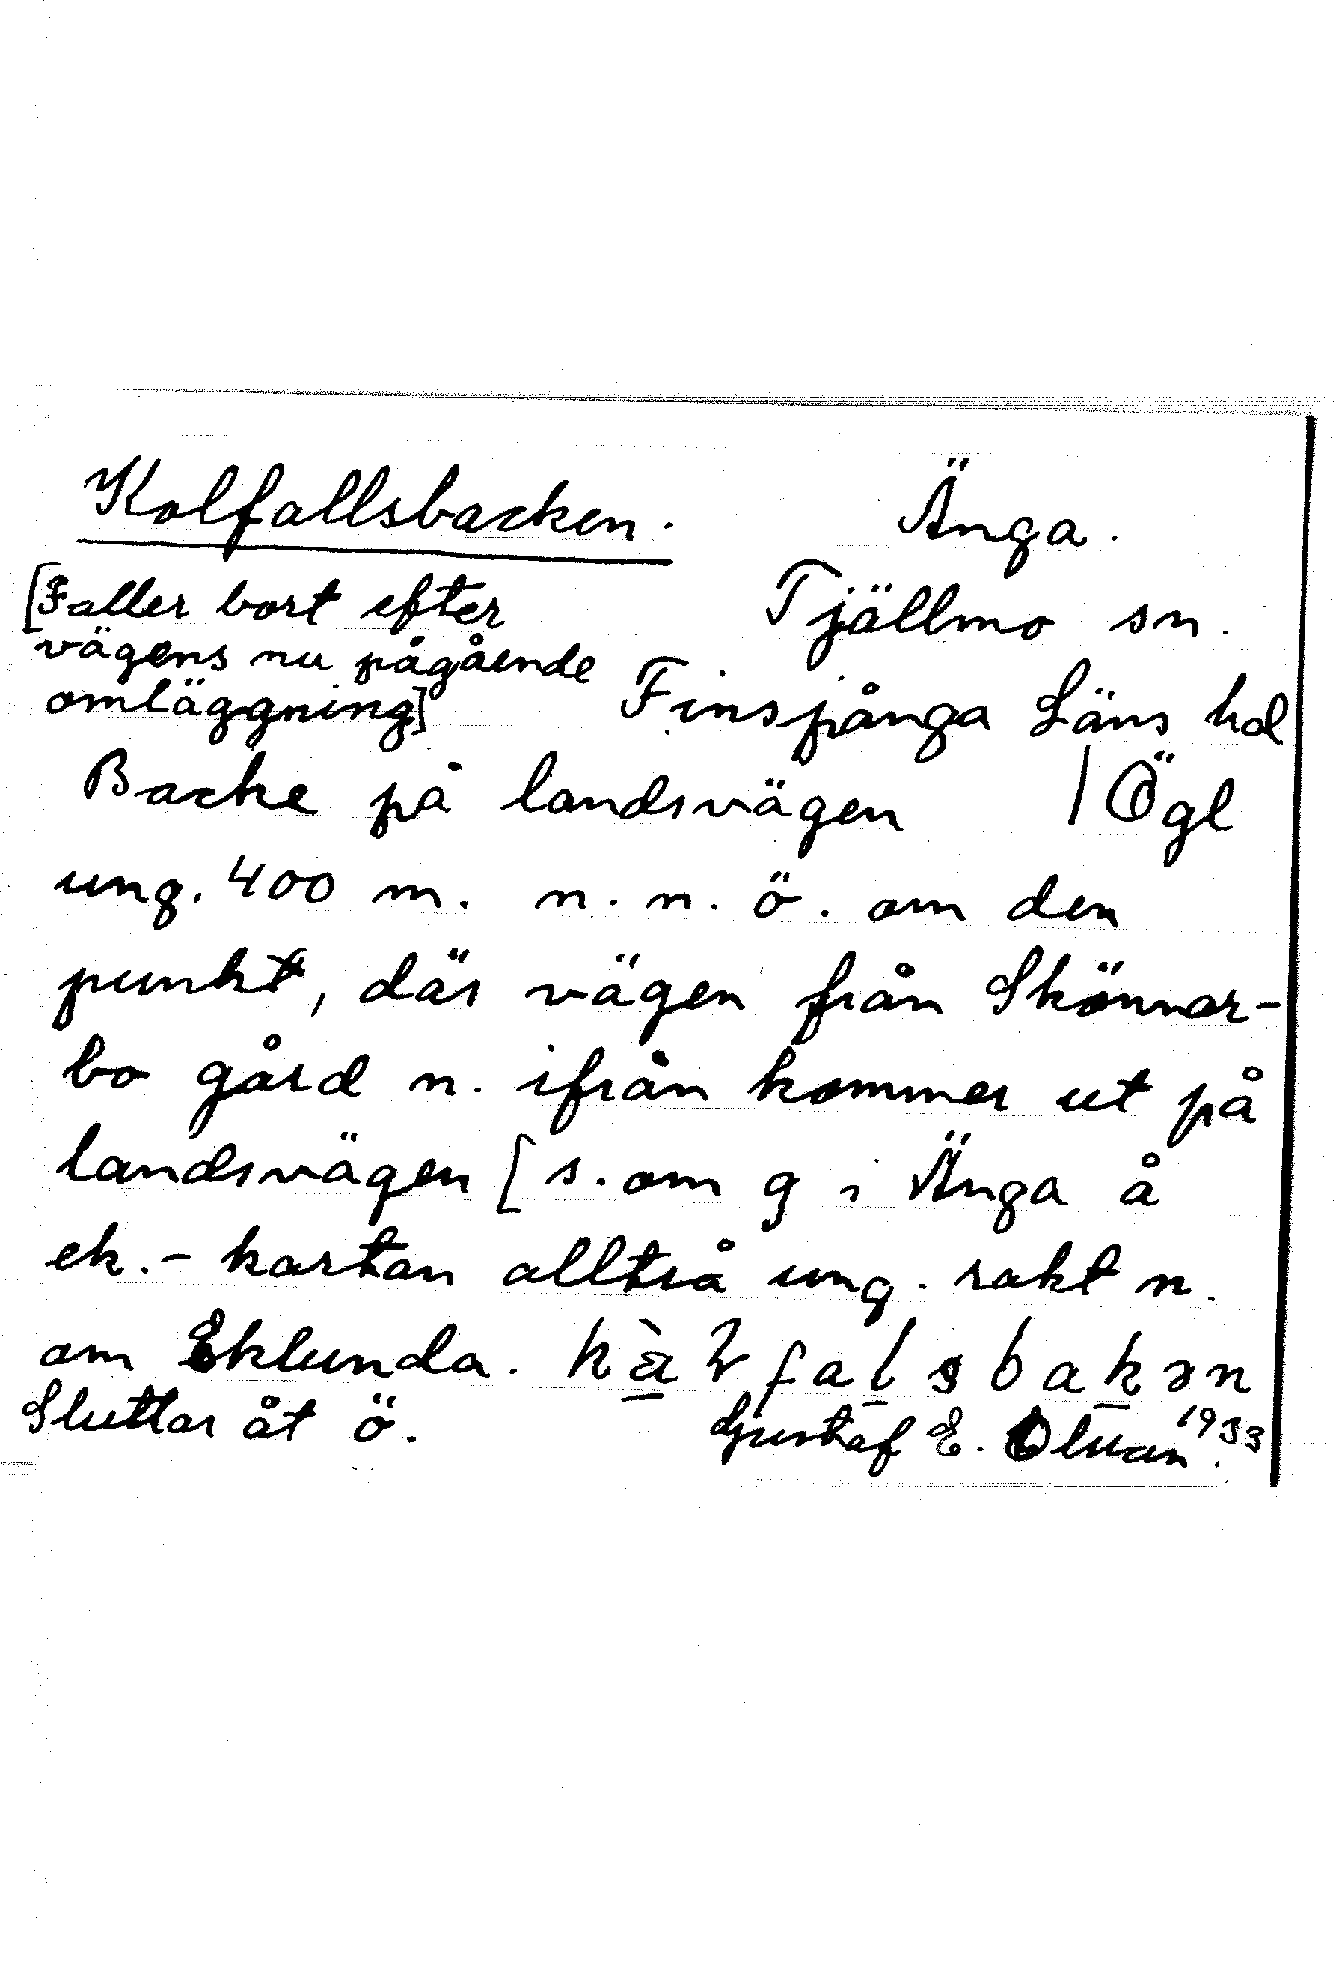 Kolfallsbacken. Änga.
[Faller bort efter Tjällmo sn.
vägens nu pågående
omläggning] Finspånga Läns hd
Backe på landsvägen | Ögl
ung. 400 m. n. n. ö. om den
punkt, där vägen från Skönnar-
bo gård n. ifrån kommer ut på
landsvägen [s. om g i Änga å
ek.-kartan alltså ung. rakt n.
om Eklunda.
Sluttar åt ö. Gustaf E. 1933